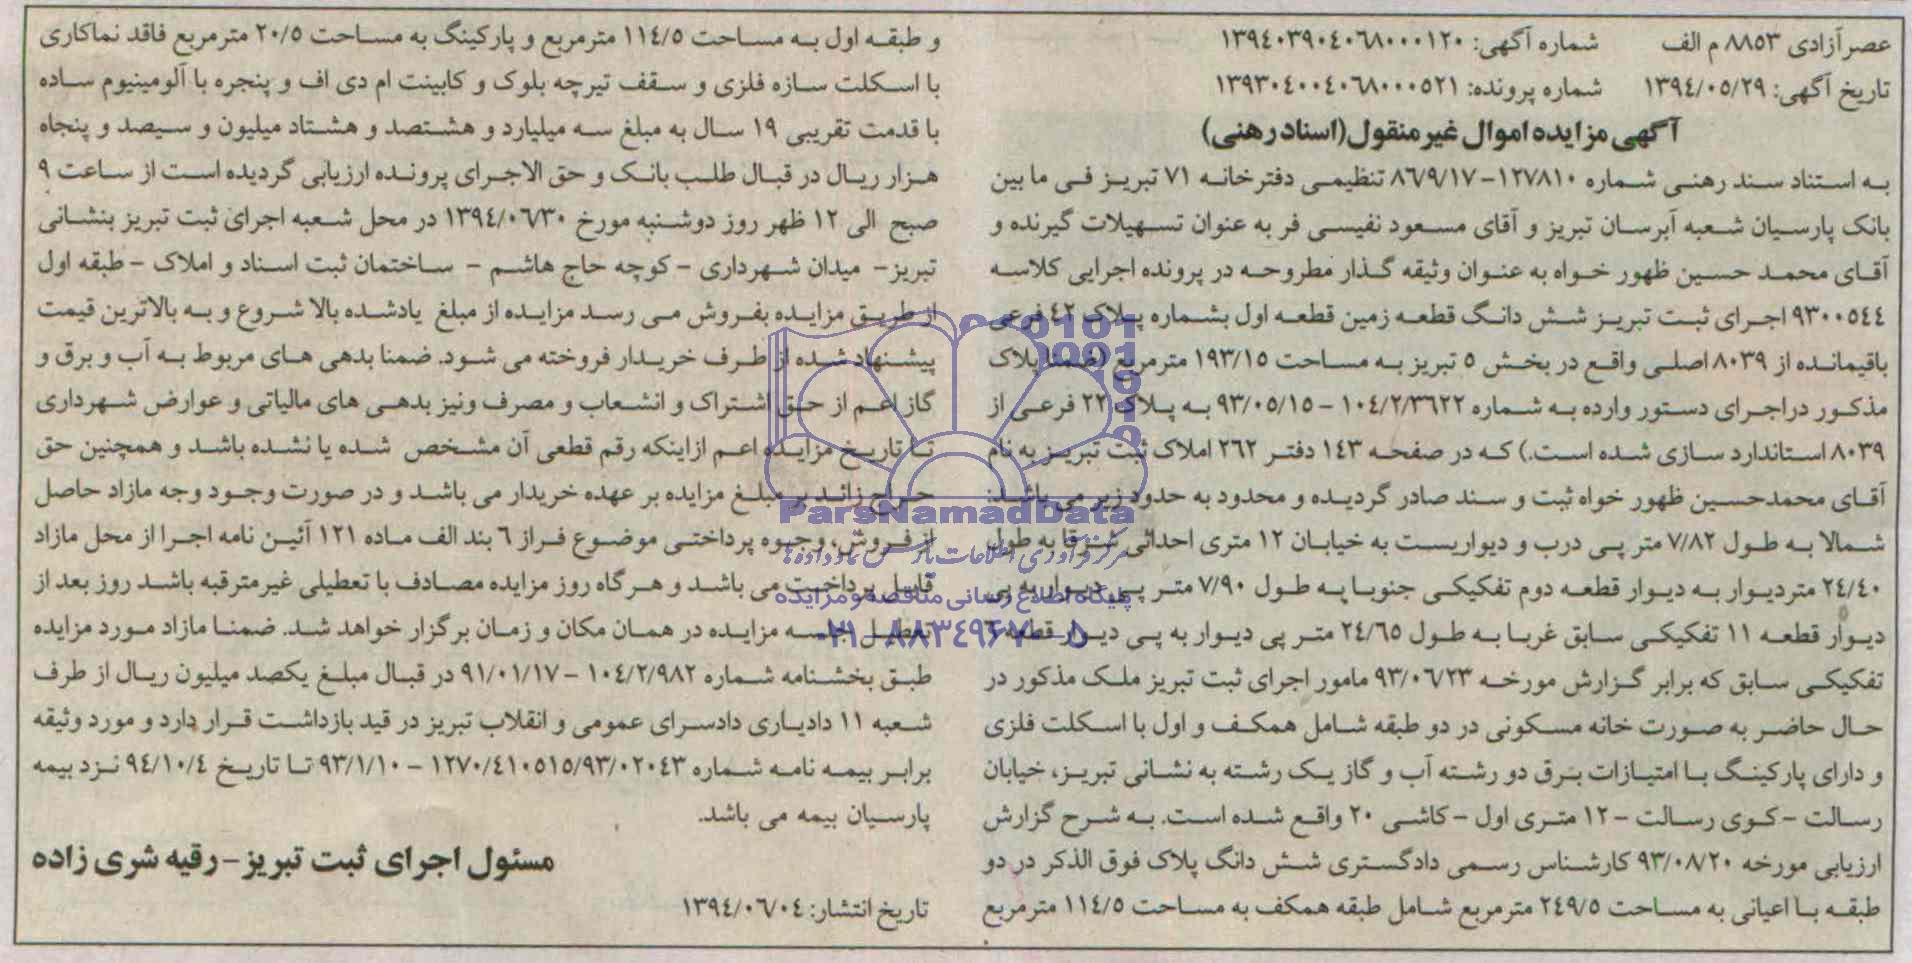 عصرآزادی ۸۸۵۳ م الف شماره آگهی: ۱۳۹٤۰۳۹۰٤۰٦۸۰۰۰۱۲۰
تاریخ آگهی: ۱۳۹٤/۰۵/۲۹ شماره پرونده: ۱۳۹۳۰٤۰۰٤۰٦۸۰۰۰۵۲۱
آگهی مزایده اموال غیرمنقول(اسناد رهنی)
به استناد سند رهنی شماره ۱۲۷۸۱۰-۸٦/۹/۱۷ تنظیمی دفترخانه ۷۱ تبریز فی ما بین
بانک پارسیان شعبه آبرسان تبریز و آقای مسعود نفیسی فر به عنوان تسهیلات گیرنده و
آقای محمد حسین ظهور خواه به عنوان وثیقه گذار مطروحه در پرونده اجرایی کلاسه
۹۳۰۰۵٤٤ اجرای ثبت تبریز شش دانگ قطعه زمین قطعه اول بشماره پلاک ٤۲ فرعی
باقیمانده از ۸۰۳۹ اصلی واقع در بخش ۵ تبریز به مساحت ۱۹۳/۱۵ مترمربع (ضمنا پلاک
مذکور دراجرای دستور وارده به شماره ۱۰٤/۲/۳٦۲۲ - ۹۳/۰۵/۱۵ به پلاک ۲۲ فرعی از
۸۰۳۹ استاندارد سازی شده است.) که در صفحه ۱٤۳ دفتر ۲٦۲ املاک ثبت تبریز به نام
آقای محمدحسین ظهور خواه ثبت و سند صادر گردیده و محدود به حدود زیر می باشد:
شمالا به طول ۷/۸۲ متر پی درب و دیواریست به خیابان ۱۲ متری احداثی شرقا به طول
۲٤/٤۰ متردیوار به دیوار قطعه دوم تفکیکی جنوبا به طول ۷/۹۰ متر پی دیوار به پی
دیوار قطعه ۱۱ تفکیکی سابق غربا به طول ۲٤/٦۵ متر پی دیوار به پی دیوار قطعه ٦
تفکیکی سابق که برابر گزارش مورخه ۹۳/۰٦/۲۳ مامور اجرای ثبت تبریز ملک مذکور در
حال حاضر به صورت خانه مسکونی در دو طبقه شامل همکف و اول با اسکلت فلزی
و دارای پارکینگ با امتیازات برق دو رشته آب و گاز یک رشته به نشانی تبریز، خیابان
رسالت - کوی رسالت - ۱۲ متری اول - کاشی ۲۰ واقع شده است. به شرح گزارش
ارزیابی مورخه ۹۳/۰۸/۲۰ کارشناس رسمی دادگستری شش دانگ پلاک فوق الذکر در دو
طبقه با اعیانی به مساحت ۲٤۹/۵ مترمربع شامل طبقه همکف به مساحت ۱۱٤/۵ مترمربع
و طبقه اول به مساحت ۱۱٤/۵ مترمربع و پارکینگ به مساحت ۲۰/۵ مترمربع فاقد نماکاری
با اسکلت سازه فلزی و سقف تیرچه بلوک و کابینت ام دی اف و پنجره با آلومینیوم ساده
با قدمت تقریبی ۱۹ سال به مبلغ سه میلیارد و هشتصد و هشتاد میلیون و سیصد و پنجاه
هزار ریال در قبال طلب بانک و حق الاجرای پرونده ارزیابی گردیده است از ساعت ۹
صبح الی ۱۲ ظهر روز دوشنبه مورخ ۱۳۹٤/۰٦/۳۰ در محل شعبه اجرای ثبت تبریز بنشانی
تبریز- میدان شهرداری - کوچه حاج هاشم - ساختمان ثبت اسناد و املاک - طبقه اول
از طریق مزایده بفروش می رسد مزایده از مبلغ یادشده بالا شروع و به بالاترین قیمت
پیشنهاد شده از طرف خریدار فروخته می شود. ضمنا بدهی های مربوط به آب و برق و
گاز اعم از حق اشتراک و انشعاب و مصرف ونیز بدهی های مالیاتی و عوارض شهرداری
تا تاریخ مزایده اعم ازاینکه رقم قطعی آن مشخص شده یا نشده باشد و همچنین حق
حراج زائد بر مبلغ مزایده بر عهده خریدار می باشد و در صورت وجود وجه مازاد حاصل
از فروش، وجوه پرداختی موضوع فراز ٦ بند الف ماده ۱۲۱ آئین نامه اجرا از محل مازاد
قابل پرداخت می باشد و هرگاه روز مزایده مصادف با تعطیلی غیرمترقبه باشد روز بعد از
تعطیل جلسه مزایده در همان مکان و زمان برگزار خواهد شد. ضمنا مازاد مورد مزایده
طبق بخشنامه شماره ۱۰٤/۲/۹۸۲ - ۹۱/۰۱/۱۷ در قبال مبلغ یکصد میلیون ریال از طرف
شعبه ۱۱ دادیاری دادسرای عمومی و انقلاب تبریز در قید بازداشت قرار دارد و مورد وثیقه
برابر بیمه نامه شماره ۱۲۷۰/٤۱۰۵۱۵/۹۳/۰۲۰٤۳ - ۹۳/۱/۱۰ تا تاریخ ۹٤/۱۰/٤ نزد بیمه
پارسیان بیمه می باشد.
مسئول اجرای ثبت تبریز- رقیه شری زاده
تاریخ انتشار: ۱۳۹٤/۰٦/۰٤
ParsNamadData
مرکز فرآوری اطلاعات پارس نماد داده ها
پایگاه اطلاع رسانی مناقصه و مزایده
۰۲۱-۸۸۳٤۹٦۷۰-۵